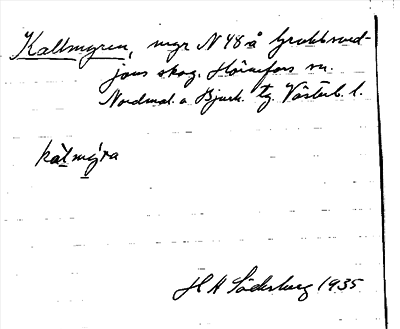 Kallmyren, myr N 48 å Grubbvad-
jans skog. Hörnefors sn.
Nordmal. o Bjurh. tg. Västerb. l.
kàlmy̗ra
H H Söderberg 1935